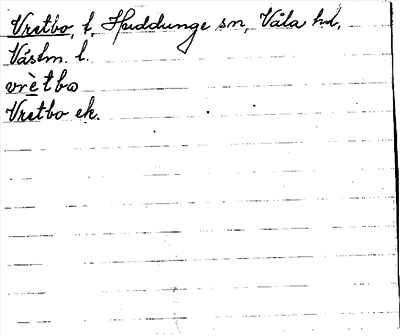 Vretbo, t, Huddunge sn, Våla hd,
Västm. l.
vrètbo
Vretbo ek.